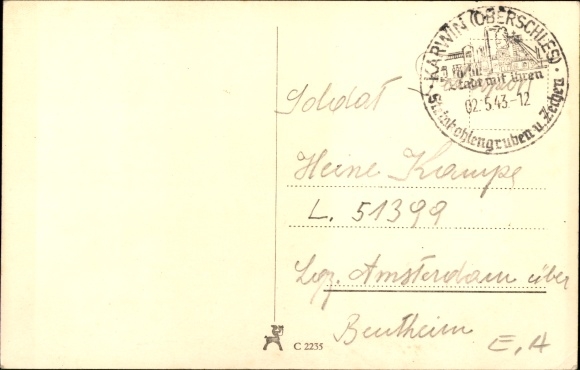 KARWIN (OBERSCHLES)
Stadt mit ihren
02.5.43.-12
Steinkohlengruben u. Zechen
Soldat
Heine Kampe
L. 51399
Lgp. Amsterdam über
Bentheim
E, H
C 2235